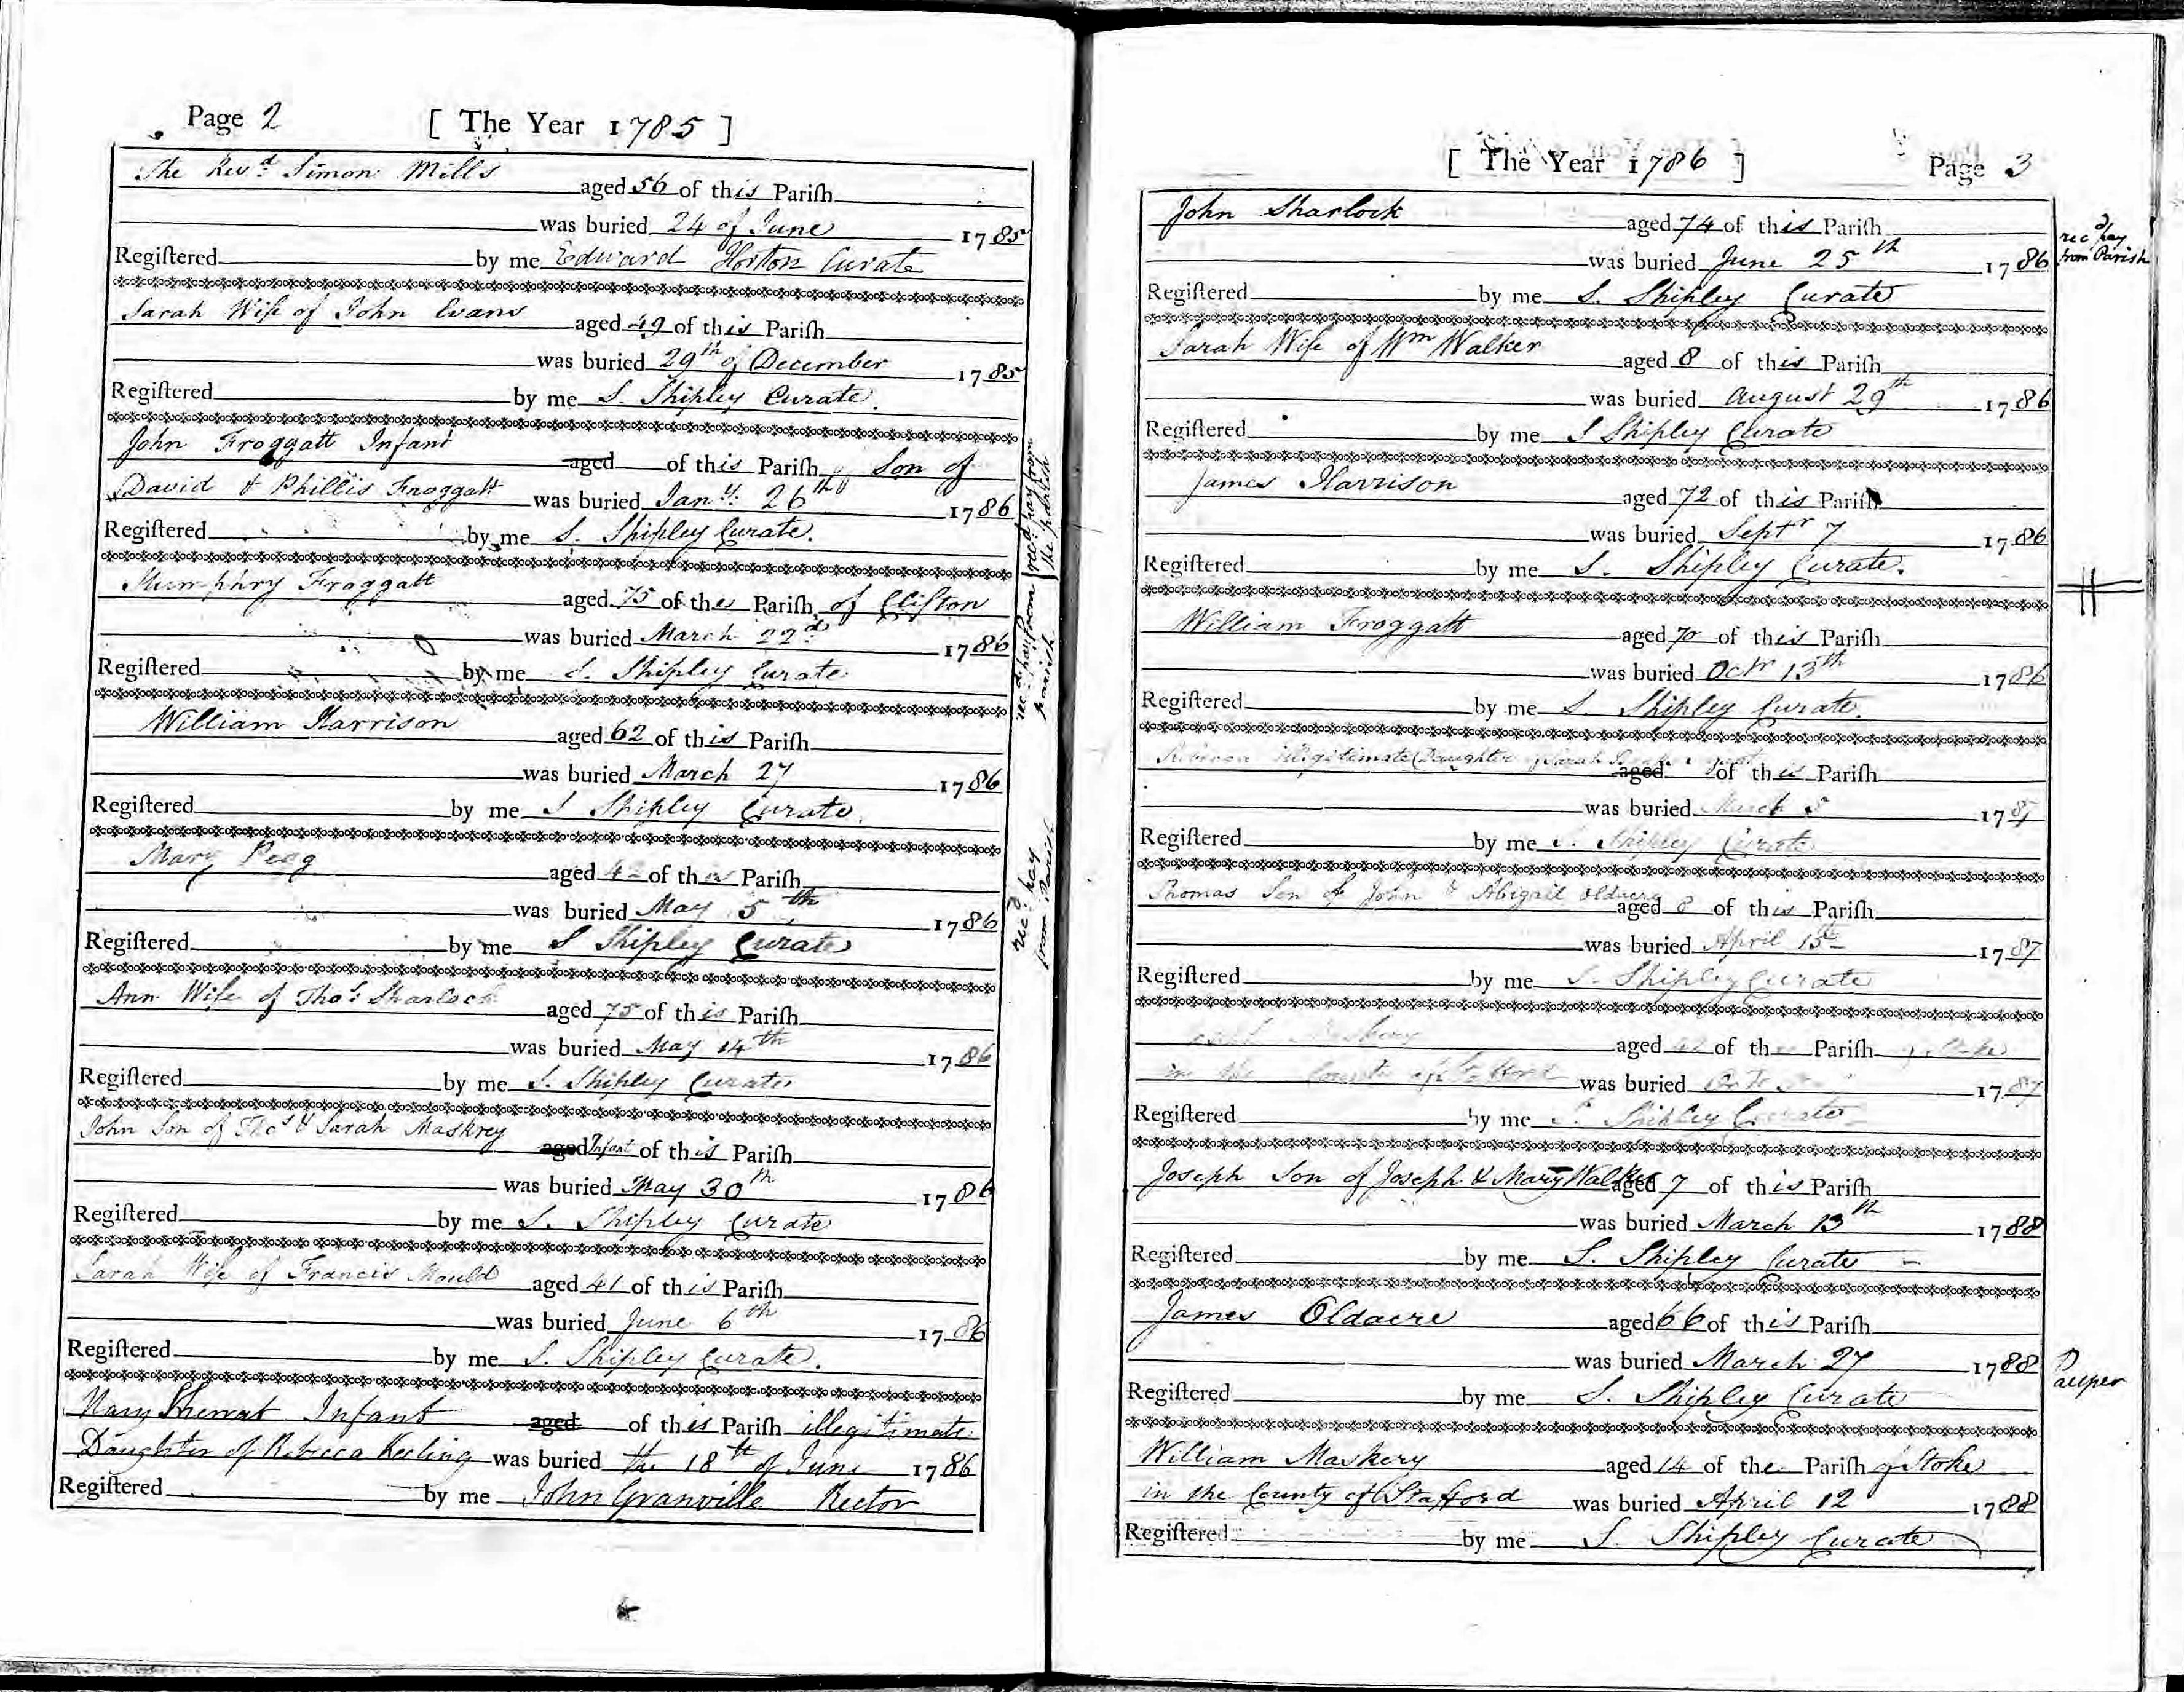 Page 2 [ The Year 1785 ]
The Revd. Simon Mills aged 56 of this Parish
was buried 24 of June 1785
Registered by me Edward Horton Curate
Sarah Wife of John Evans aged 49 of this Parish
was buried 29th of December 1785
Registered by me S. Shipley Curate.
John Froggatt Infant aged of this Parish Son of
David & Phillis Froggatt was buried Jany. 26th 1786
Registered by me S. Shipley Curate.
Humphry Froggatt aged 75 of the Parish of Clifton
was buried March 22d. 1786
Registered by me S. Shipley Curate
William Harrison aged 62 of this Parish
was buried March 27 1786
Registered by me S Shipley Curate.
Mary Pegg aged 42 of this Parish
was buried May 5th 1786
Registered by me S Shipley Curate
Ann Wife of Thos: Sharlock aged 75 of this Parish
was buried May 14th 1786
Registered by me S. Shipley Curate
John Son of Thos & Sarah Maskrey aged Infant of this Parish
was buried May 30th 1786
Registered by me S. Shipley Curate
Sarah Wife of Francis Mould aged 41 of this Parish
was buried June 6th 1786
Registered by me S. Shipley Curate.
Mary Sherrat Infant aged of this Parish illegitimate
Daughter of Rebecca Keeling was buried the 18th of June 1786
Registered by me John Granville Rector
recd. pay from
the parish
recd. pay from
parish
recd. pay
from Parish
[ The Year 1786 ] Page 3
John Sharlock aged 74 of this Parish
was buried June 25th 1786
Registered by me S. Shipley Curate
recd pay
from Parish
Sarah Wife of Wm Walker aged 8 of this Parish
was buried August 29th 1786
Registered by me S Shipley Curate
James Harrison aged 72 of this Parish
was buried Septr 7 1786
Registered by me S. Shipley Curate.
William Froggatt aged 70 of this Parish
was buried Octr 13th 1786
Registered by me S. Shipley Curate.
Rebecca illegitimate Daughter of Sarah aged of this Parish
was buried March 5 1787
Registered by me S. Shipley Curate
Thomas Son of John & Abigail Oldacre aged 8 of this Parish
was buried April 15th 1787
Registered by me S. Shipley Curate
aged 42 of the Parish of Stoke
in the County of Stafford was buried 1787
Registered by me S. Shipley Curate
Joseph Son of Joseph & Mary Walker aged 7 of this Parish
was buried March 13th 1788
Registered by me S. Shipley Curate
James Oldacre aged 66 of this Parish
was buried March 27 1788
Registered by me S. Shipley Curate
Pauper
William Maskery aged 14 of the Parish of Stoke
in the County of Stafford was buried April 12 1788
Registered by me S. Shipley Curate